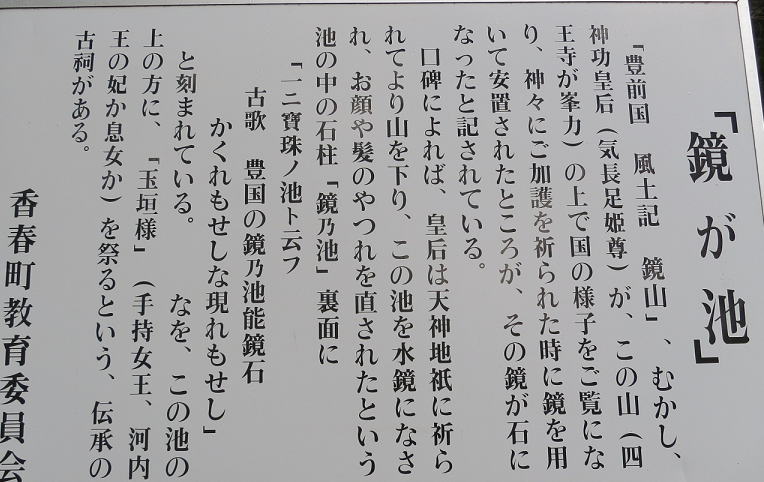 「鏡が池」
『豊前国　風土記　鏡山』、むかし、
神功皇后（気長足姫尊）が、この山（四
王寺が峯力）の上で国の様子をご覧にな
り、神々にご加護を祈られた時に鏡を用
いて安置されたところが、その鏡が石に
なったと記されている。
口碑によれば、皇后は天神地祇に祈ら
れてより山を下り、この池を水鏡になさ
れ、お顔や髪のやつれを直されたという
池の中の石柱「鏡乃池」裏面に
「一ニ寶珠ノ池ト云フ
古歌　豊国の鏡乃池能鏡石
かくれもせしな現れもせし」
と刻まれている。　なを、この池の
上の方に、『玉垣様』（手持女王、河内
王の妃か息女か）を祭るという、伝承の
古祠がある。
香春町教育委員会